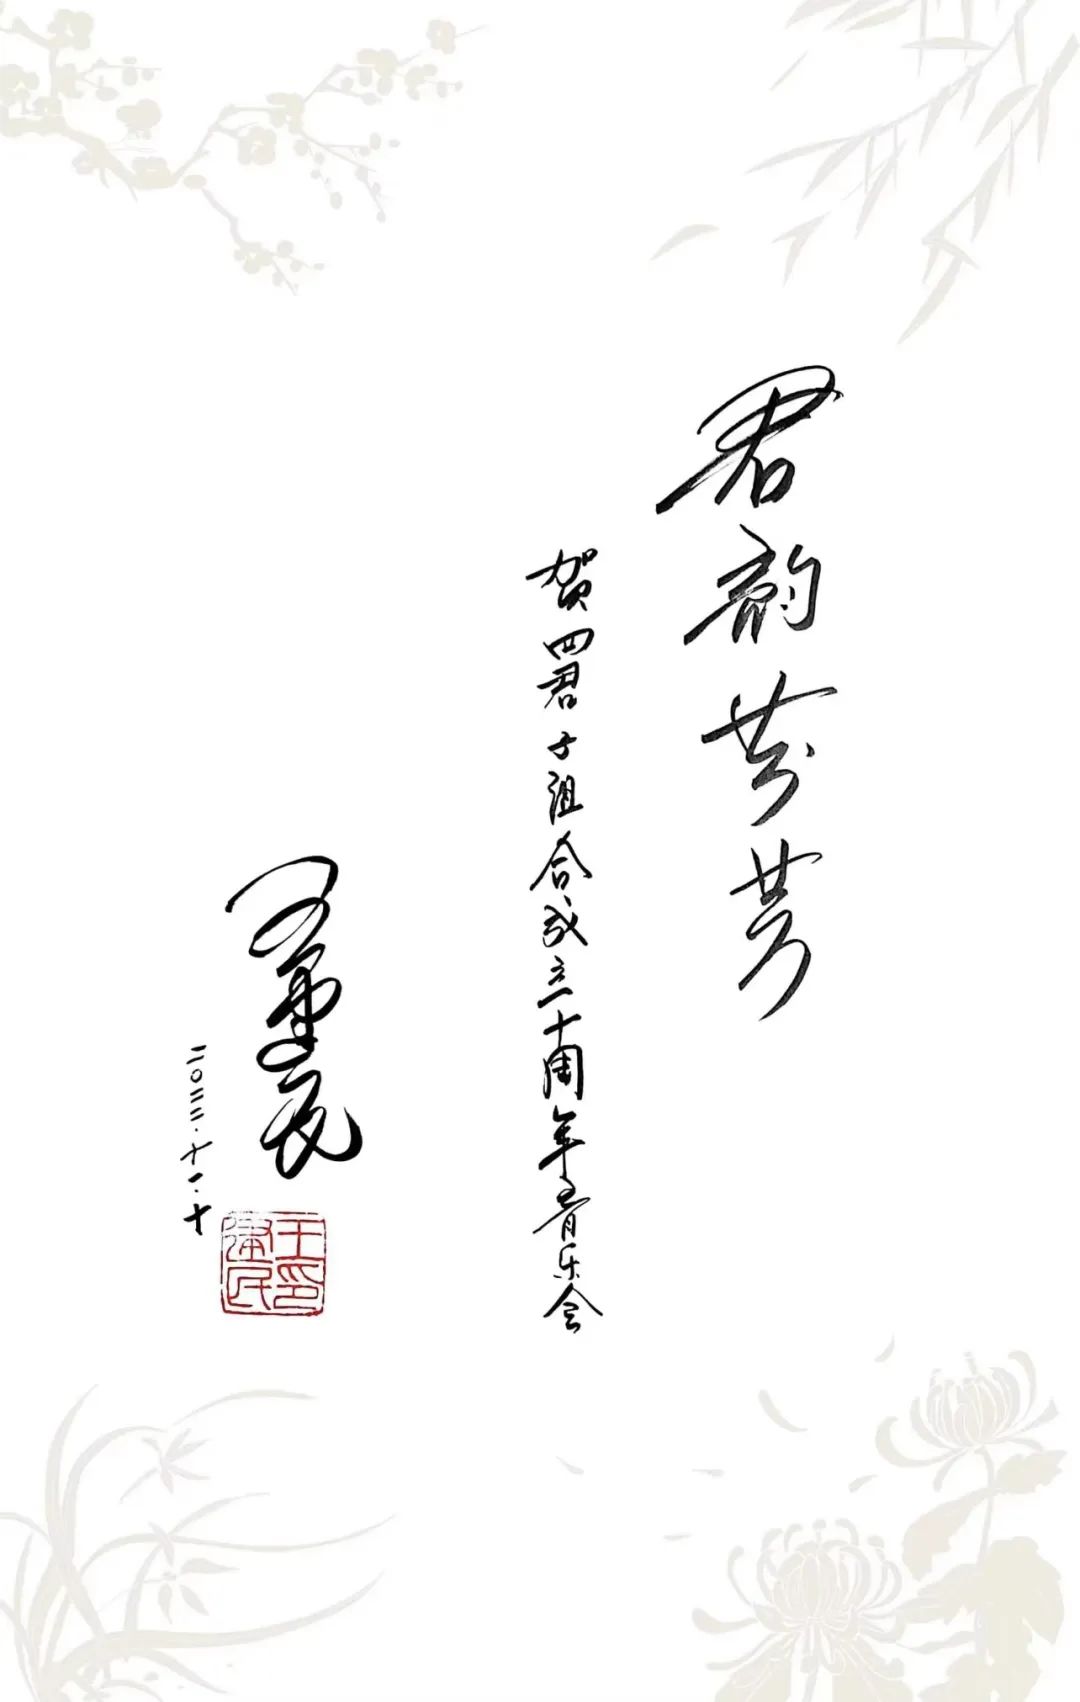 君韵芬芳
贺四君子组合成立十周年音乐会
王建民
二〇二二.十一.十
王印建民